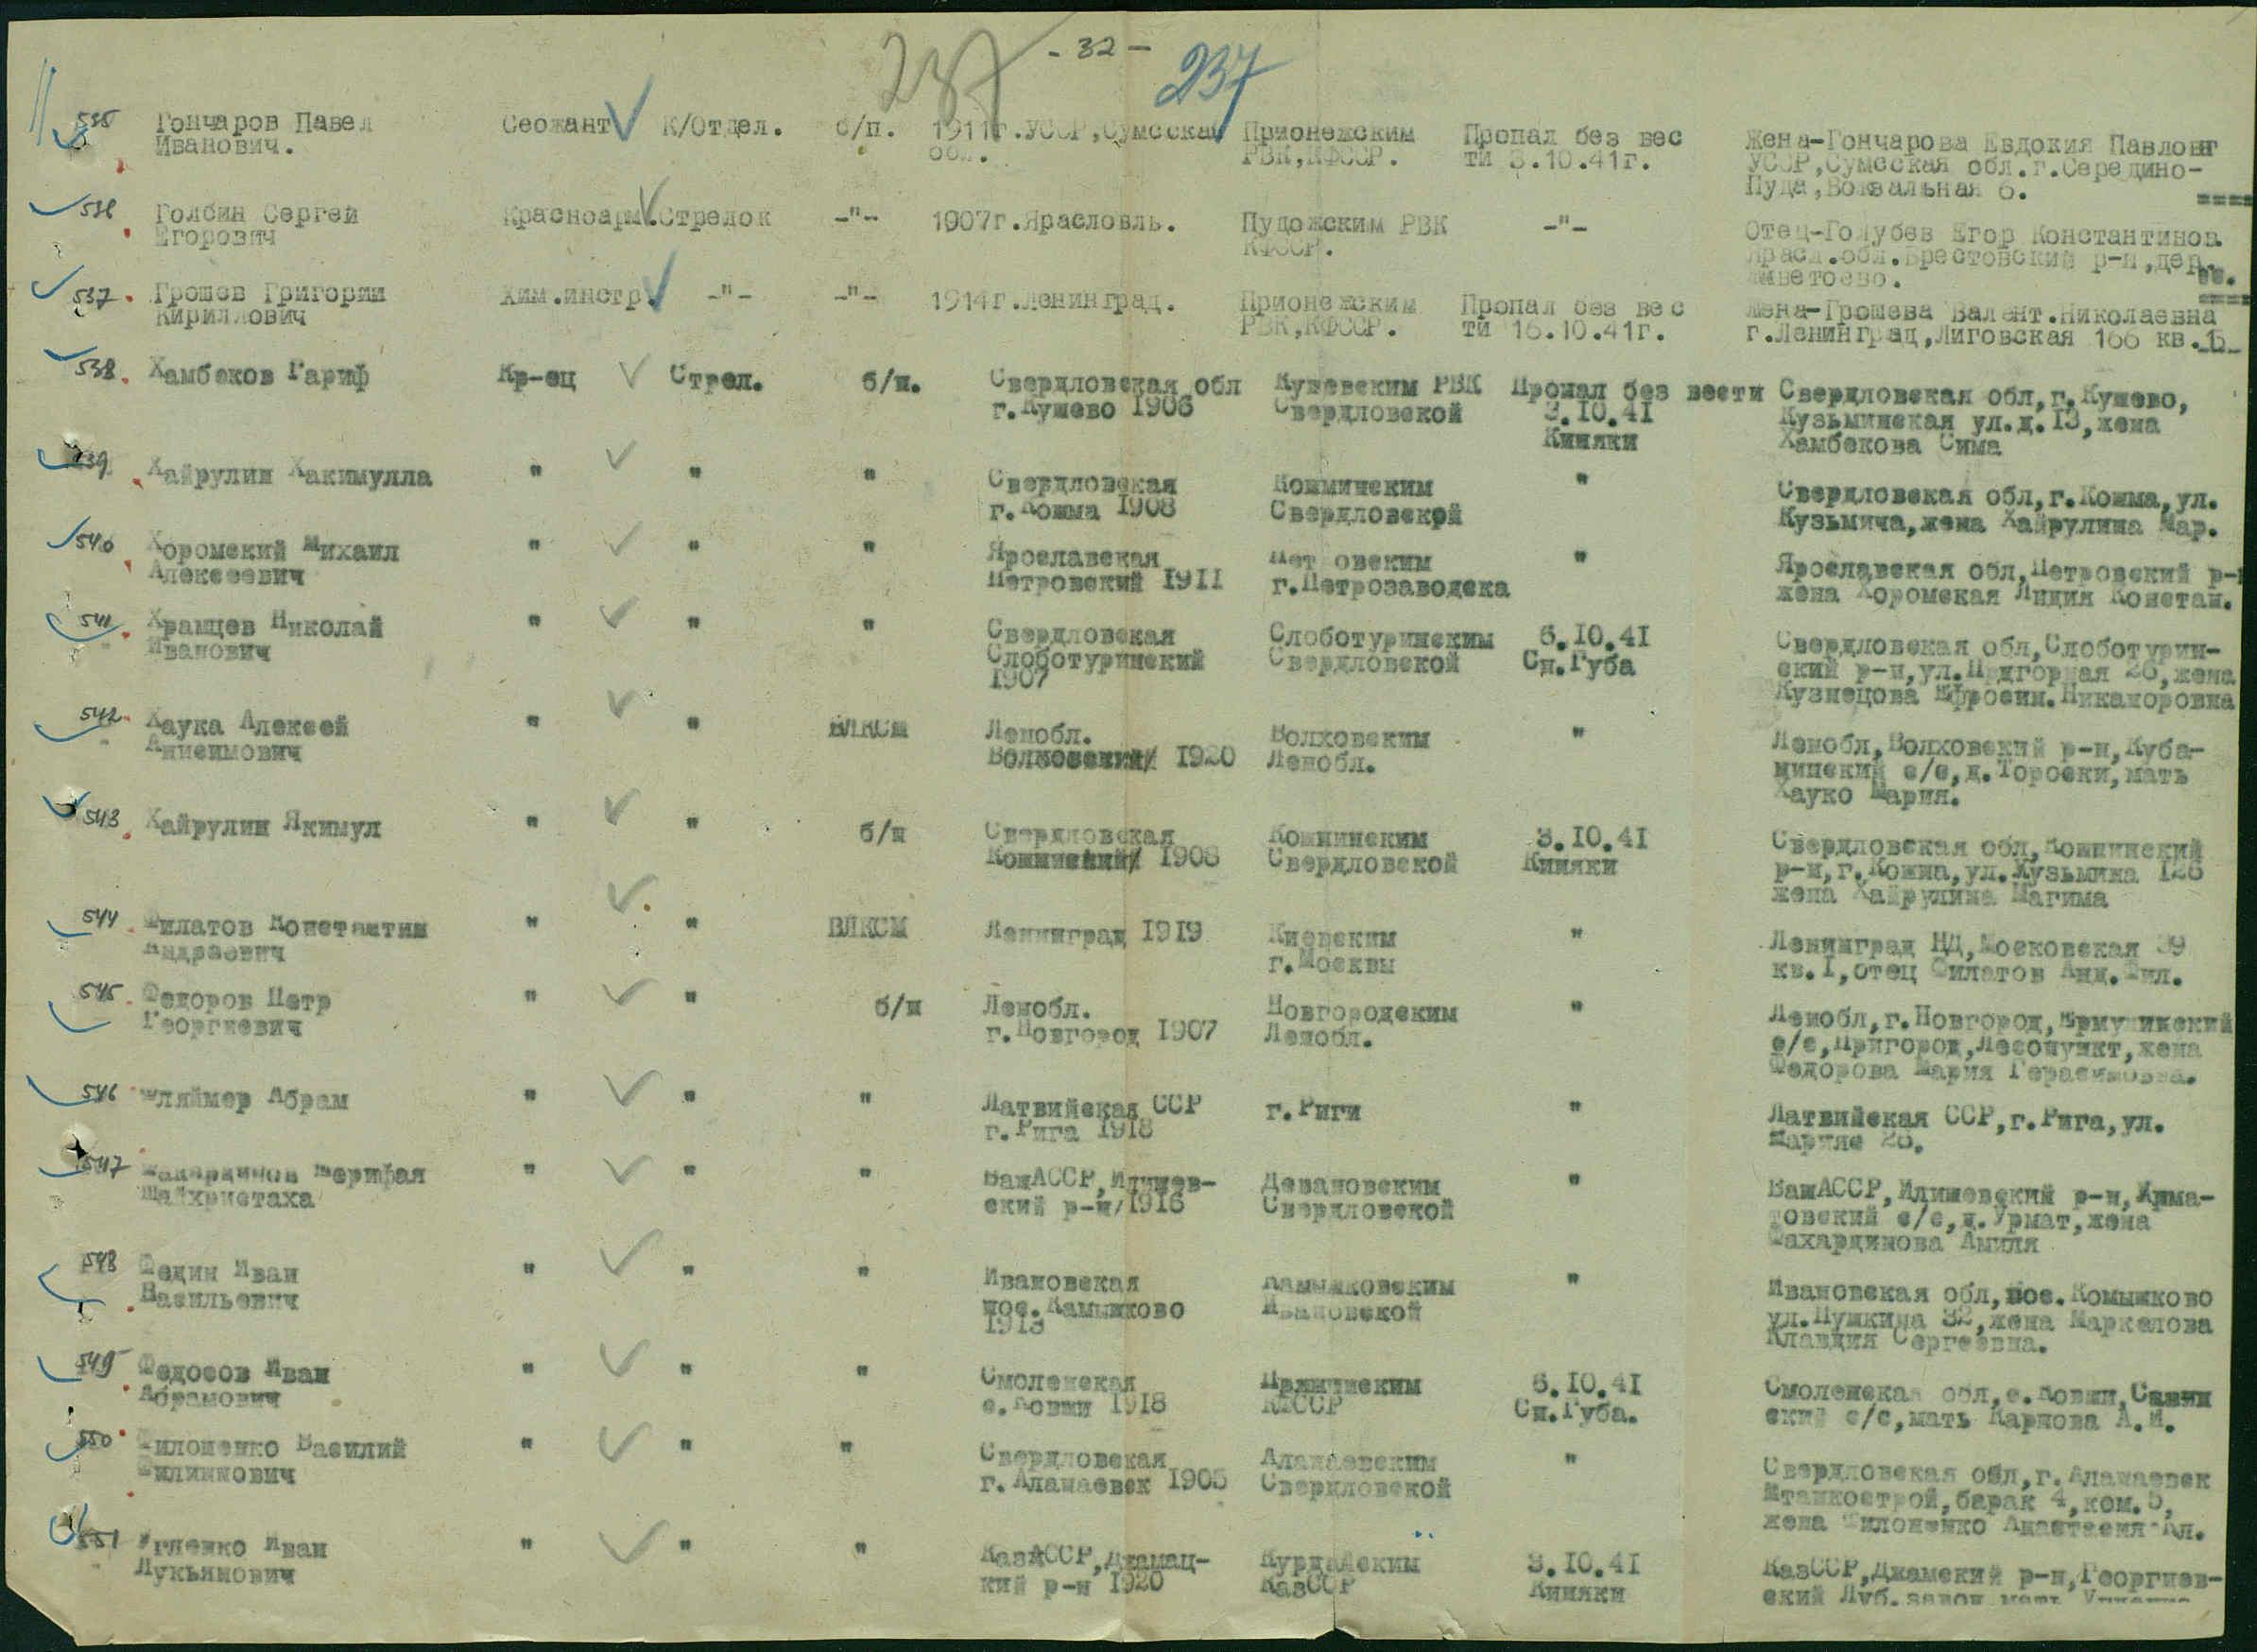 - 32 -
237 237
535 Гончаров Павел Сеожант К/Отдел. б/п. 1911г.УССР,Сумсская Прионежским Пропал без вес Жена-Гончарова Евдокия Павловн
Иванович. обл. РВК,КФССР. ти 3.10.41г. УССР,Сумсская обл.г.Середино-
Пуда,Вокзальная 6.
536 Голбин Сергей Красноарм. Стрелок -"- 1907г.Ярасловль. Пудожским РВК -"- Отец-Голубев Егор Константинов
Егорович КФССР. Ярасл.обл.Брестовский р-н,дер.
537. Грошев Григорий Хим.инстр. -"- -"- 1914г.Ленинград. Прионежским Пропал без вес Жена-Грошева Валент.Николаевна
Кириллович РВК,КФССР. ти 16.10.41г. г.Ленинград,Лиговская 166 кв.
538. Хамбеков Гариф Кр-ец Стрел. б/п. Свердловская обл Кушевским РВК Пропал без вести Свердловская обл,г.Кушево,
г.Кушево 1906 Свердловской 3.10.41 Кузьминская ул.д.13,жена
Киняки Хамбекова Сима
539. Хайрулин Хакимулла " " " Свердловская Кошминским " Свердловская обл,г.Кошма,ул.
г.Кошма 1908 Свердловской Кузьмича,жена Хайрулина Мар.
540 Хоромский Михаил " " " Ярославская " Ярославская обл,Петровский р-н
Алексеевич Петровский 1911 г.Петрозаводска жена Хоромская Лидия Констан.
541. Храмцев Николай " " " Свердловская Слоботуринским 6.10.41 Свердловская обл,Слоботурин-
Иванович Слоботуринский Свердловской Сн.Губа ский р-н,ул.Пригорная 26,жена
1907 Кузнецова Ефросин.Никаноровна
542. Хаука Алексей " " ВЛКСМ Ленобл. Волховским " Ленобл,Волховский р-н,Куба-
Анисимович Волховский/ 1920 Ленобл. нинский с/с,д.Торсеки,мать
Хауко Мария.
543. Хайрулин Якимул " " б/п Свердловская Кошнинским 3.10.41 Свердловская обл,Кошнинский
1908 Свердловской Киняки р-н,г.Кошна,ул.Кузьмина 126
жена Хайрулина Магима
544. Филатов Константин " " ВЛКСМ Ленинград 1919 Киевским " Ленинград НД,Московская 39
Андраевич г.Москвы кв.1,отец Филатов Анд.Фил.
545. Федоров Петр " " б/п Ленобл. Новгородским " Ленобл,г.Новгород,
Георгиевич г.Новгород 1907 Ленобл. с/с,Пригород,Лесопункт,жена
Федорова Мария Герасимовна.
546 Шляймер Абрам " " " Латвийская ССР г.Риги " Латвийская ССР,г.Рига,ул.
г.Рига 1918
547 " " " БашАССР,Илишев- Девановским " БашАССР,Илишевский р-н,
Шайхристаха ский р-н/1916 Свердловской товский с/с,д.Урмат,жена
Фахардинова Амиля
548 Федин Иван " " " Ивановская Камышковским " Ивановская обл,пос.Комышково
Васильевич пос.Камышково Ивановской ул.Пушкина 32,жена Маркелова
1913 Клавдия Сергеевна.
549 Федосов Иван " " " Смоленская 6.10.41 Смоленская обл,с.Ковши,
Абрамович с.Ковши 1918 КФССР Сн.Губа. ский с/с,мать Карпова А.И.
550 Филоненко Василий " " " Свердловская Алапаевским " Свердловская обл,г.Алапаевск
Филиппович г.Алапаевск 1905 Свердловской Штанкострой,барак 4,ком.5,
жена Филоненко Анастасия
551 Угленко Иван " " " КазАССР,Джамац- Курдайским 3.10.41 КазССР,Джамский р-н,Георгиев-
Лукьянович кий р-н 1920 КазССР Киняки ский Луб.завод